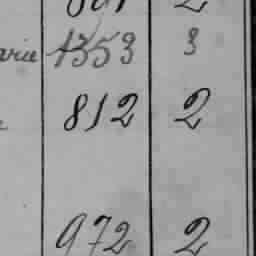 arie 1353 3
812 2
972 2